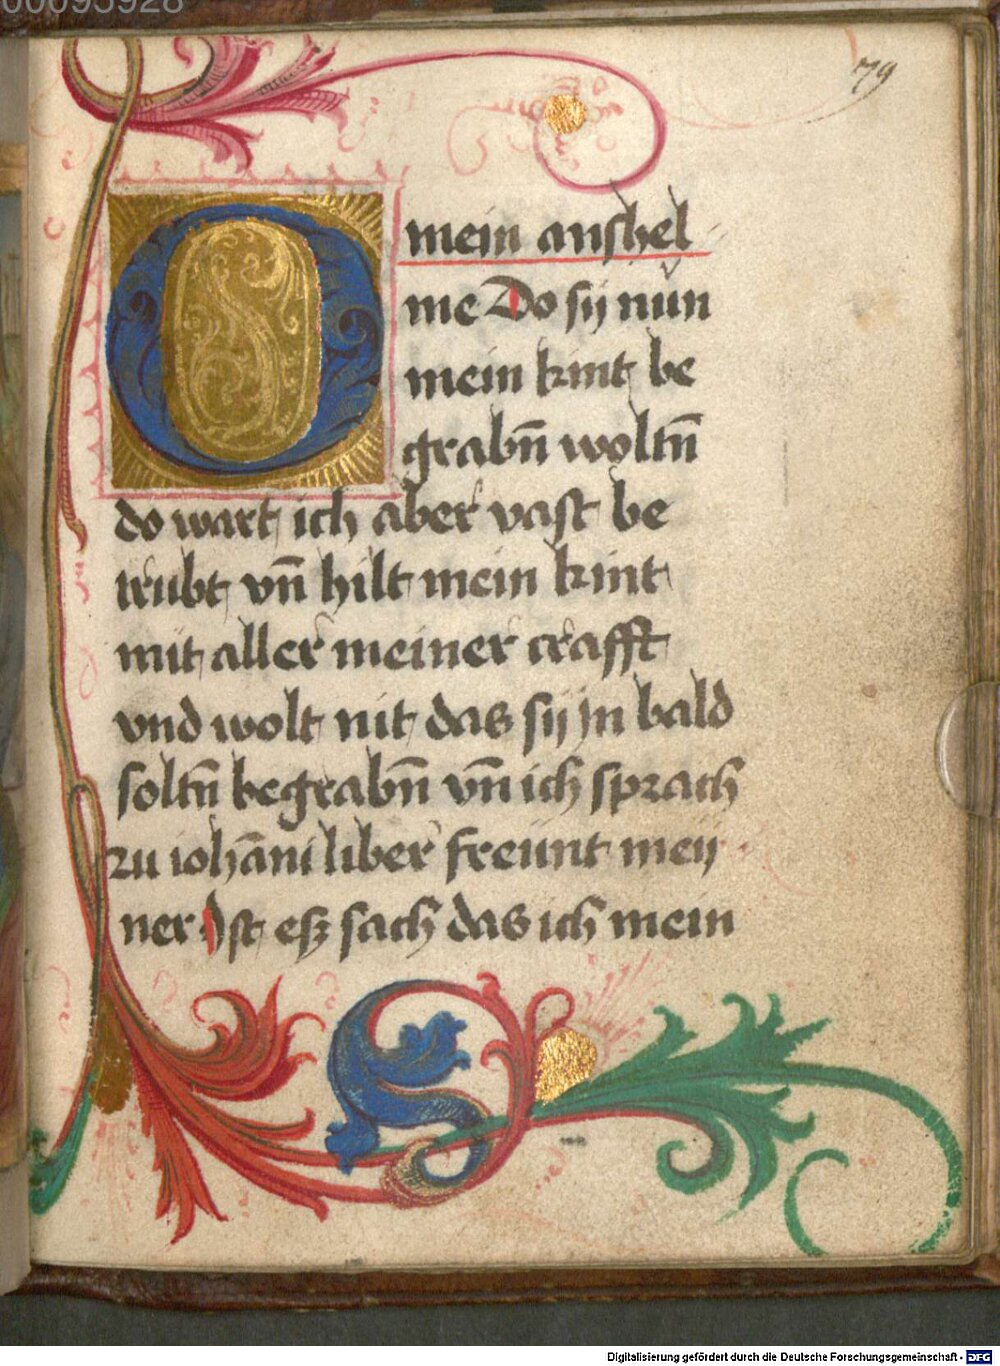 00095928
79
O mein anshel
me Do sij nün
mein kint be
grabn̄ woltn̄
do wart ich aber vast be
trubt vn̄ hilt mein kint
mit aller meiner crafft
vnd wolt nit das sij jn bald
soltn̄ begrabn̄ vn̄ ich sprach
zu ioh̄ani liber freunt meij
ner Ist esz sach das ich mein
Digitalisierung gefördert durch die Deutsche Forschungsgemeinschaft - DFG